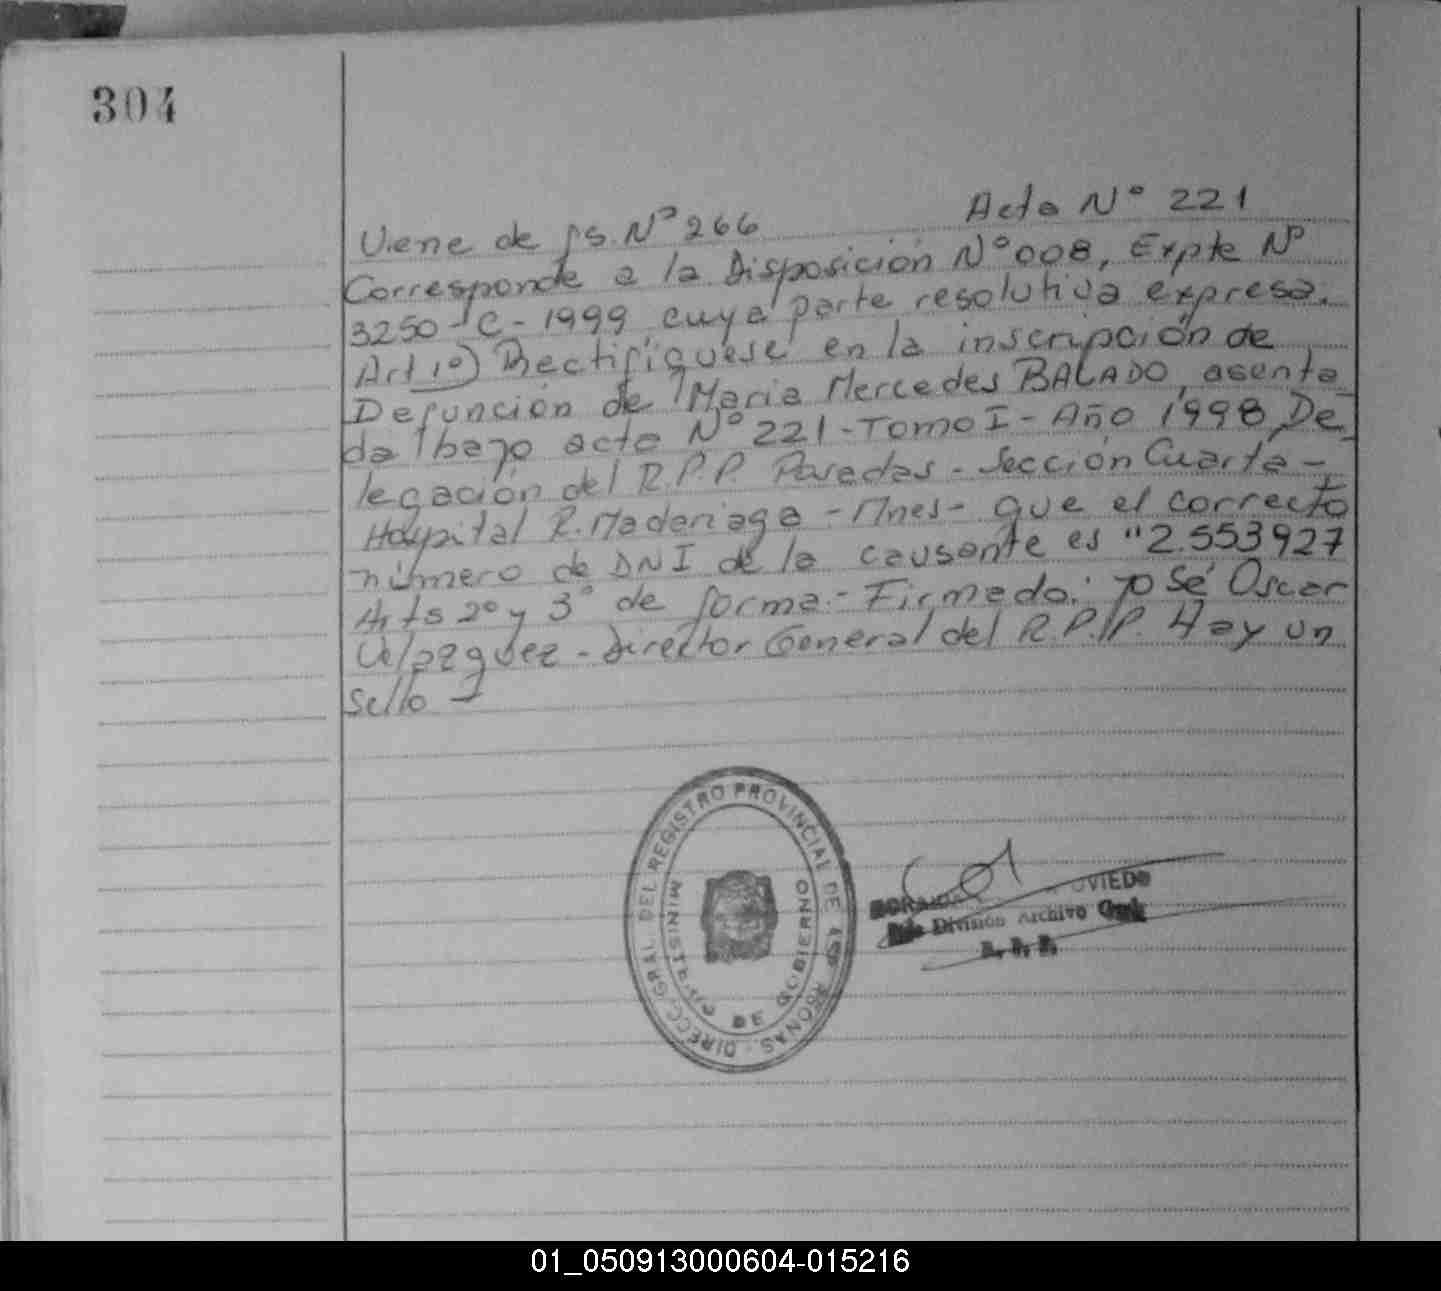 304
Acta N° 221
Viene de fs. N° 266
Corresponde a la Disposición N° 008, Expte N°
3250-C-1999, cuya parte resolutiva expresa.
Art 1°) Rectifíquese en la inscripción de
Defunción de Maria Mercedes BALADO, asenta
da bajo acta N° 221-Tomo I- Año 1998, De
legación del R.P.P. Posadas - Sección Cuarta -
Hospital R. Madariaga - Mnes - que el correcto
número de DNI de la causante es "2.553927
Arts 2° y 3° de forma.- Firmado: José Oscar
Velazquez - Director General del R.P.P. Hay un
sello -
DIRECC. GRAL. DEL REGISTRO PROVINCIAL DE LAS PERSONAS
MINISTERIO DE GOBIERNO
OVIEDO
División Archivo Gral.
R. P. P.
01_050913000604-015216